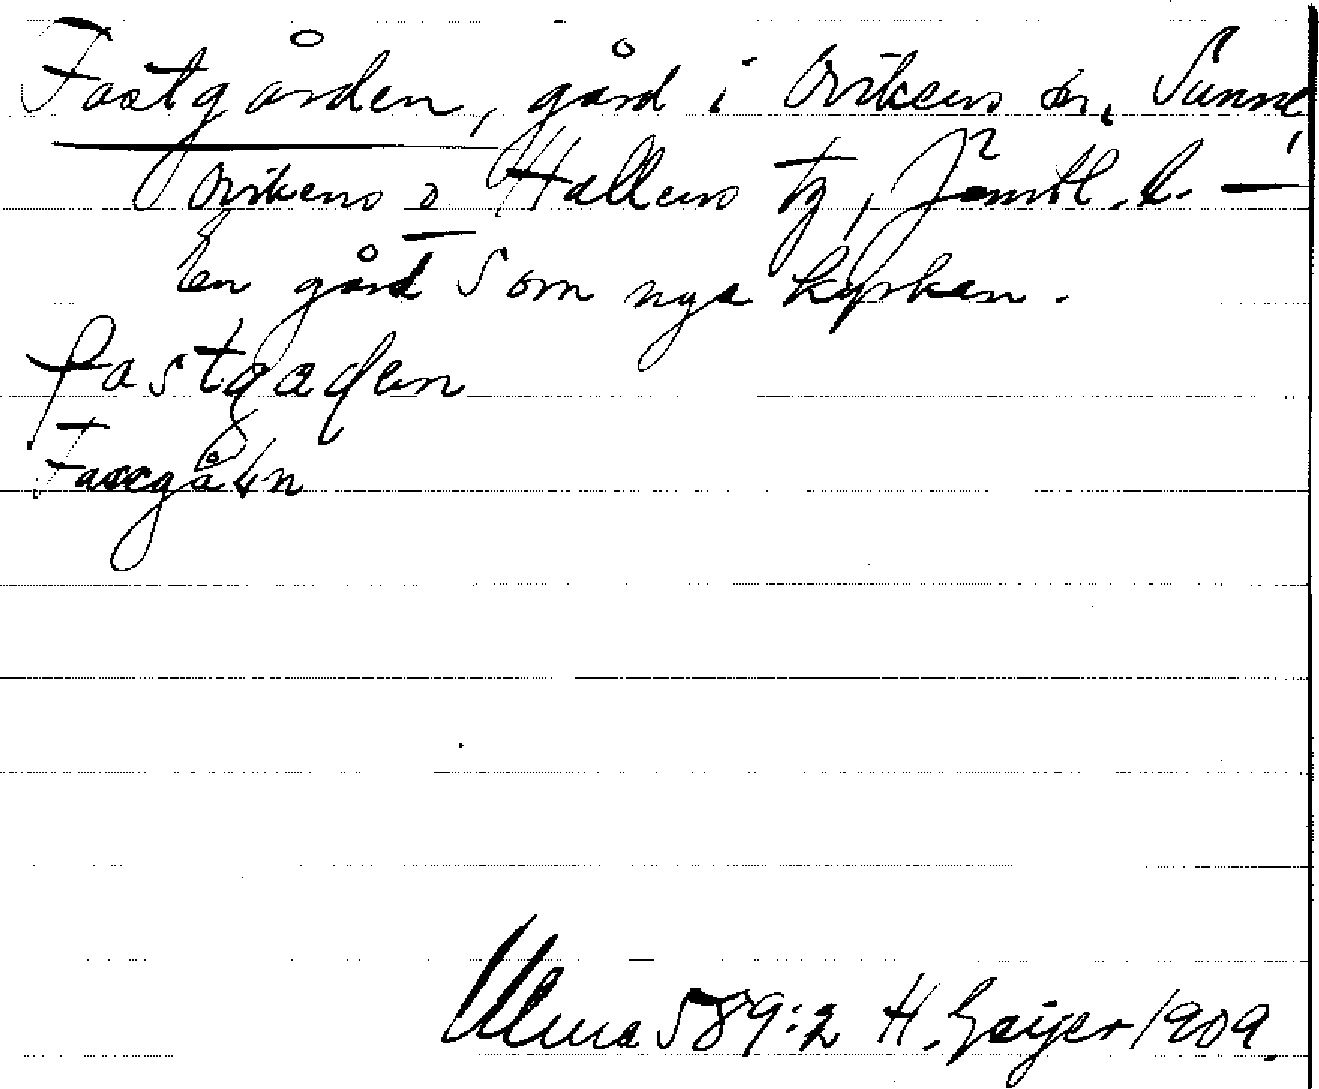 Fastgården, gård i Ovikens sn, Sunne,
Ovikens o Hallens tg, Jämtl. l. —
En gård S om nya kyrkan.
fastgaɖen
Faxgåɖn
Ulma 589:2 H. Geijer 1909.